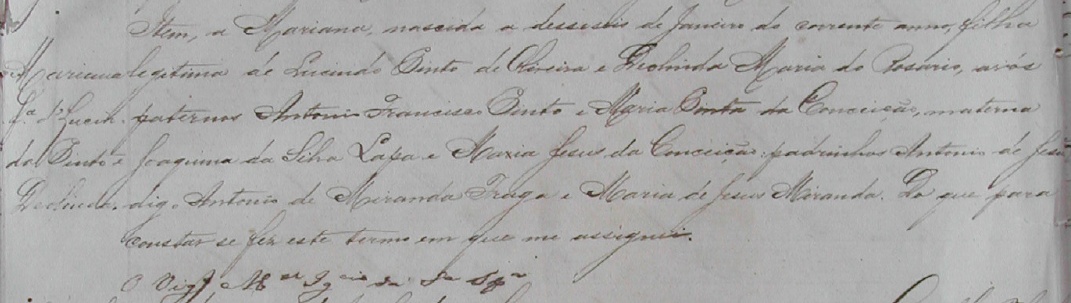 Item, a Mariana, nascida a dessesseis de Janeiro do corrente anno, filha
Marianna legitima de Lucindo Pinto de Oliveira e Deolinda Maria do Rosario, avós
f.ª d' Lucin- paternos Antonio Francisco Pinto e Maria Pinta da Conceição, materna
do Pinto e Joaquina da Silva Lapa e Maria Jesus da Conceição padrinhos Antonio de Jesus
Deolinda. digo Antonio de Miranda Fraga e Maria de Jesus Miranda. Do que para
constar se fez este termo em que me assignei.
O Vigº M.el Ig.cio da S.a